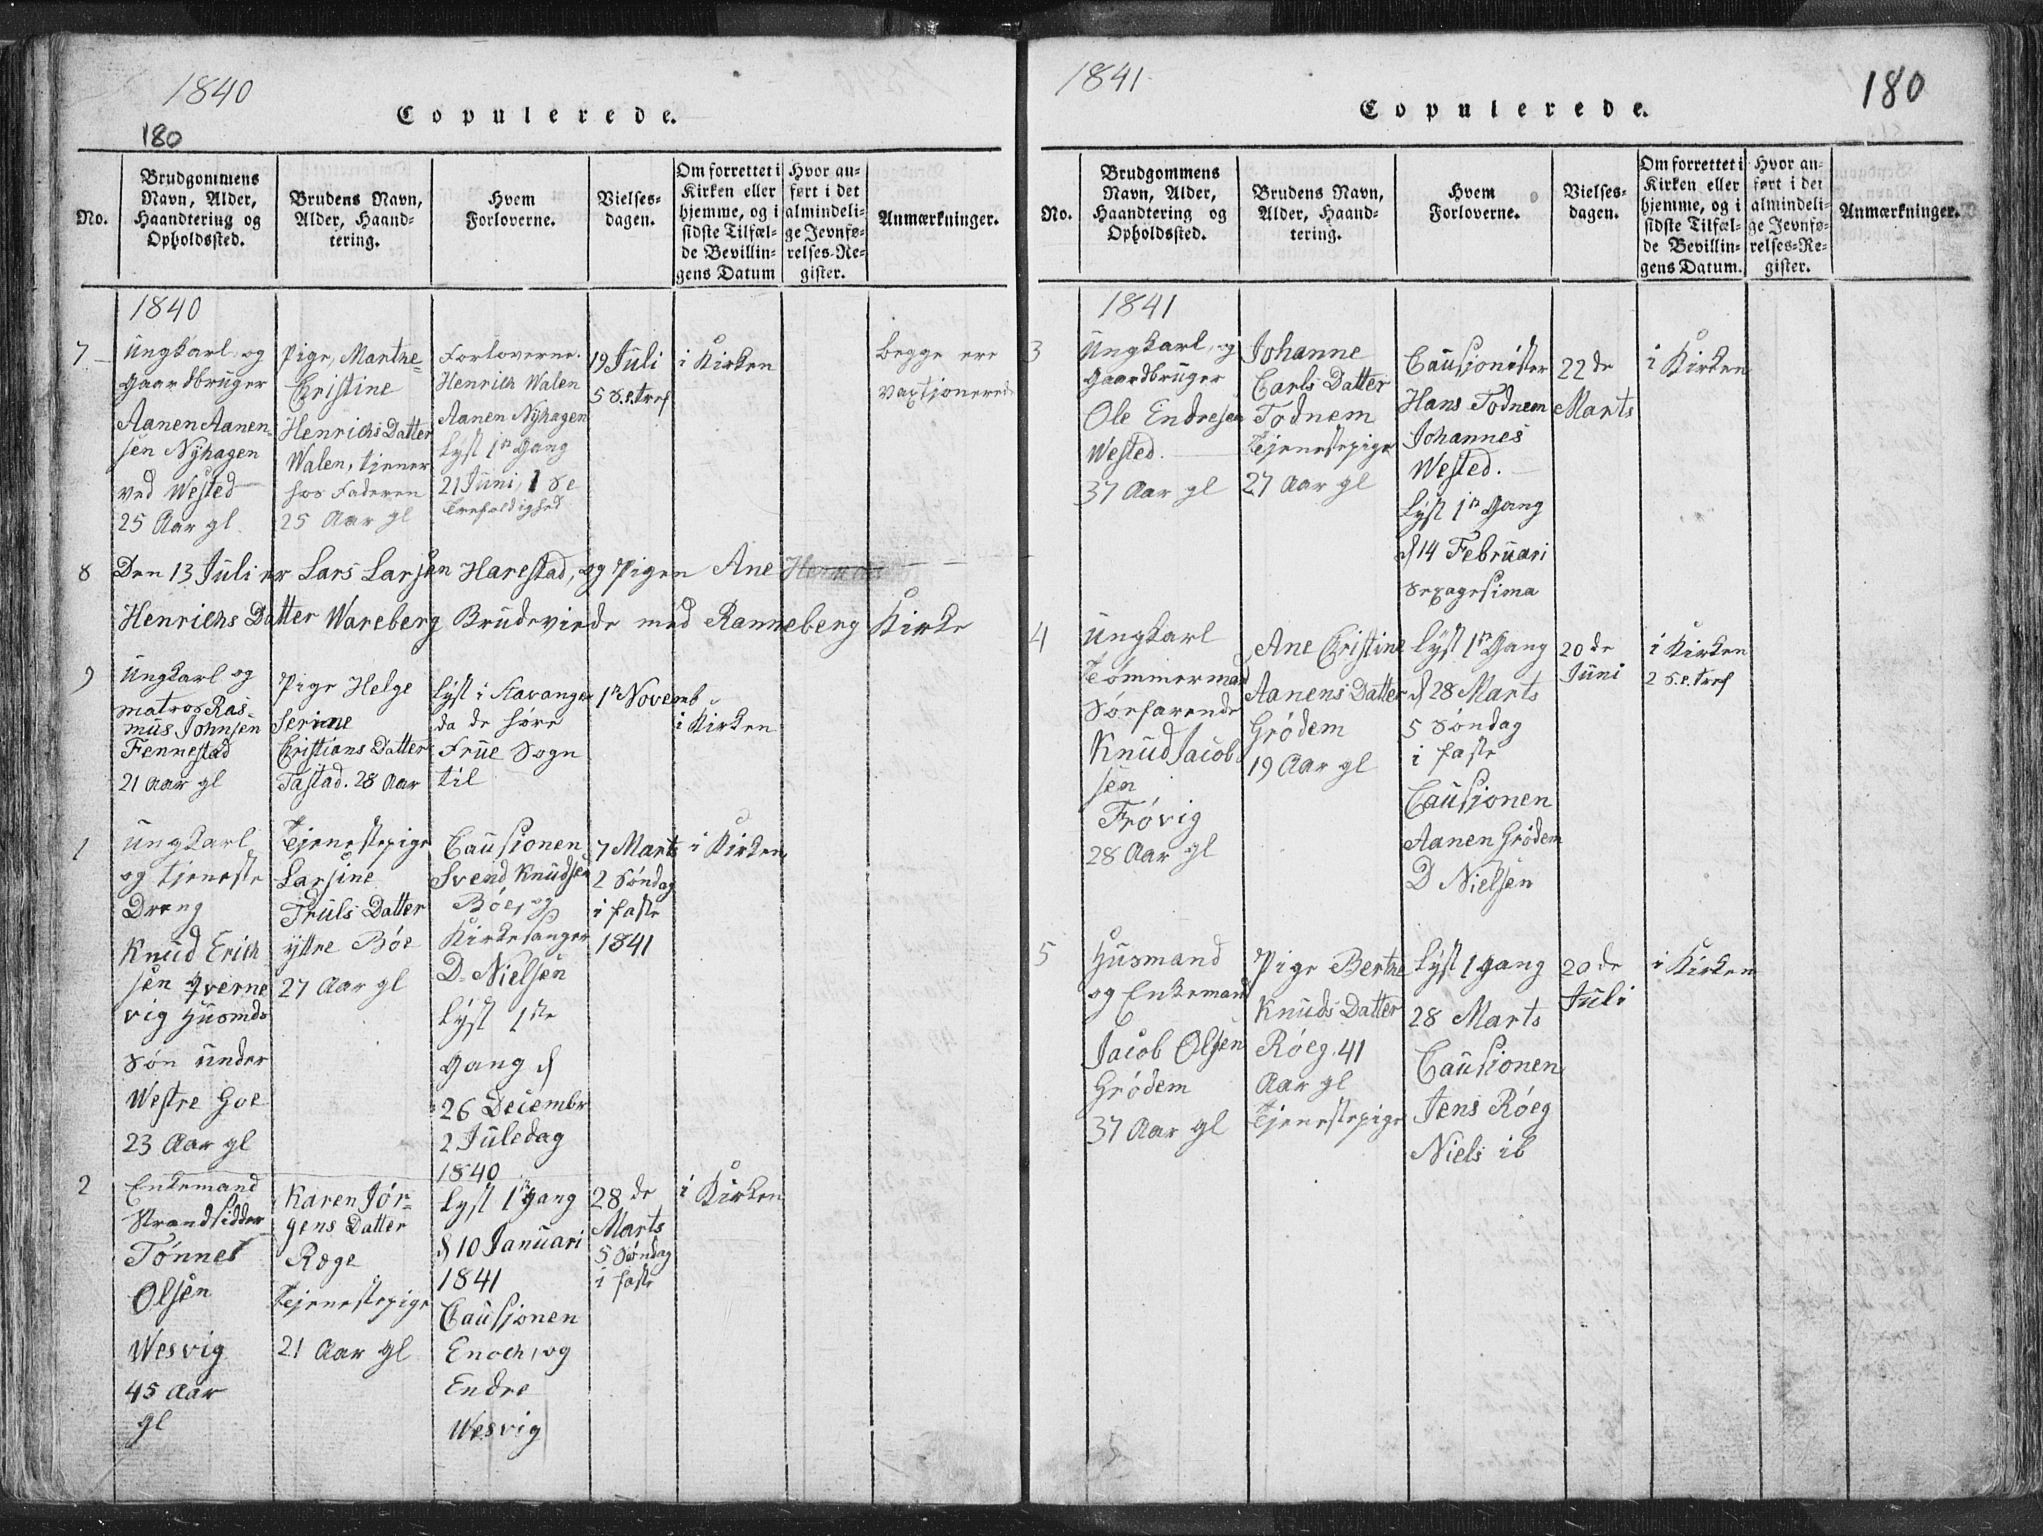 1840
Copulerede.
180
No.
Brudgommens Navn, Alder, Haandtering og Opholdssted.
Brudens Navn, Alder, Haandtering.
Hvem Forloverne.
Vielsesdagen.
Om forrettet i Kirken eller hjemme, og i sidste Tilfælde Bevillingens Datum
Hvor anført i det almindelige Jevnførelses-Register.
Anmærkninger.
1840
7
Ungkarl og
Gaardbruger
Aanen Aanen-
sen Nyhagen
ved Wested
25 Aar gl
Pige, Marthe
Cristine
Henrichs Datter
Walen, tjener
hos Faderen
25 Aar gl
Forloverne.
Henrich Walen
Aanen Nyhagen
Lyst 1n Gang
21 Juni, 1 Se
Trefoldighed
19 Juli
5 S.e.tref
i Kirken
begge ere
vaxsjonerede
8
Den 13 Juli er Lars Larsen Harestad, og Pigen Ane
Henrichs Datter Wareberg Brudeviede med Ranneberg Kirke
9
Ungkarl og
matros Ras-
mus Johnsen
Fennestad
21 Aar gl
Pige Helge
Serine
Cristians Datter
Tastad. 28 Aar
Lyst i Stavanger
da de höre
Frue Sogn
til
1n Novemb
i Kirken
1
Ungkarl
og tjeneste
Dreng
Knud Erich
sen Qverne
vig Husmds
Søn under
Westre Goe
23 Aar gl
Tjenestepige
Larsine
Truls Datter
yttre Böe
27 Aar gl
Causionen
Svend Knudsen
Böe, og
Kirkesanger
D. Nielsen
Lyst 1ste
Gang d
26 Decembr
2 Juledag
1840
7 Marts
2 Söndag
i faste
1841
i Kirken
2
Enkemand
Strandsidder
Tönnes
Olsen
Wesvig
45 Aar
gl
Karen Jör-
gens Datter
Roge
Tjenestepige
21 Aar gl
Lyst 1n Gang
d 10 Januari
1841
Causjonen
Enoch, og
Endre
Wesvig
28 de
Marts
5 Söndag
i faste
i Kirken
1841
Copulerede.
180
No.
Brudgommens Navn, Alder, Haandtering og Opholdssted.
Brudens Navn, Alder, Haandtering.
Hvem Forloverne.
Vielsesdagen.
Om forrettet i Kirken eller hjemme, og i sidste Tilfælde Bevillingens Datum.
Hvor anført i det almindelige Jevnførelses-Register.
Anmærkninger.
1841
3
Ungkarl, og
Gaardbruger
Ole Endresen
Wested.
37 Aar gl
Johanne
Carls Datter
Todnem
Tjenestepige
27 Aar gl
Causionister
Hans Todnem
Johannes
Wested.
Lyst 1n Gang
d 14 Februari
Sexagesima
22 de
Marts
i Kirken
4
Ungkarl
Tömmermand
Söefarende
Knud Jacob
sen
Frövig
28 Aar gl
Ane Cristine
Aanens Datter
Grödem
19 Aar gl
Lyst 1n Gang
d 28 Marts
5 Söndag
i faste
Causjonen
Aanen Grödem
D Nielsen
20 de
Juni
i Kirken
2 S.e.tref
5
Husmand
og Enkemand
Jacob Olsen
Grödem
37 Aar gl
Pige Berthe
Knuds Datter
Röeg. 41
Aar gl
Tjenestepige
Lyst 1 gang
28 Marts
Causionen
Jens Röeg
Niels ib
20 de
Juli
i Kirken